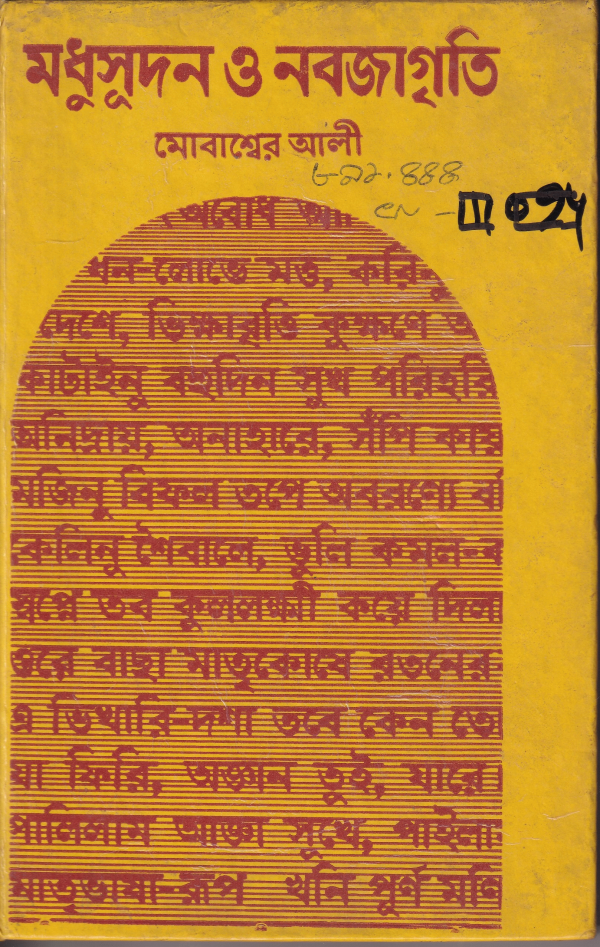 মধুসূদন ও নবজাগৃতি
মোবাশ্বের আলী
৮৯১.৪৪৪
অবোধ আ
ধন-লোভে মত্ত, করিনু
দেশে, ভিক্ষাবৃত্তি কুক্ষণে অ
কাটাইনু বহুদিন সুখ পরিহরি
অনিদ্রায়, অনাহারে, সঁপি কায়
মজিনু বিফল তপে অবরণ্যে ব
কেলিনু শৈবালে, ভুলি কমল-ক
স্বপ্নে তব কুললক্ষ্মী কয়ে দিলা
ওরে বাছা মাতৃকোষে রতনের
এ ভিখারি-দশা তবে কেন তো
যা ফিরি, অজ্ঞান তুই, যারে
পালিলাম আজ্ঞা সুখে, পাইলা
মাতৃভাষা-রূপ খনি পূর্ণ মণি